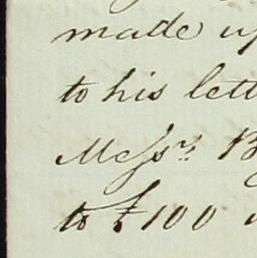 made up
to his lett
Messrs. B
to £100